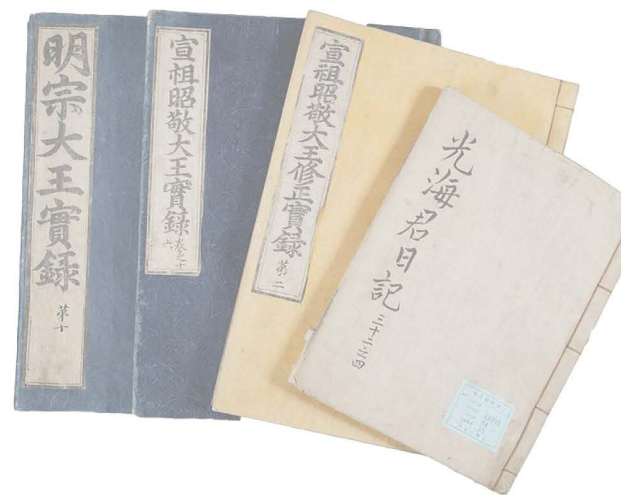 明宗大王實録
第十
宣祖昭敬大王實録
卷之十
六
宣祖昭敬大王修正實録
第二
光海君日記
三十二之四